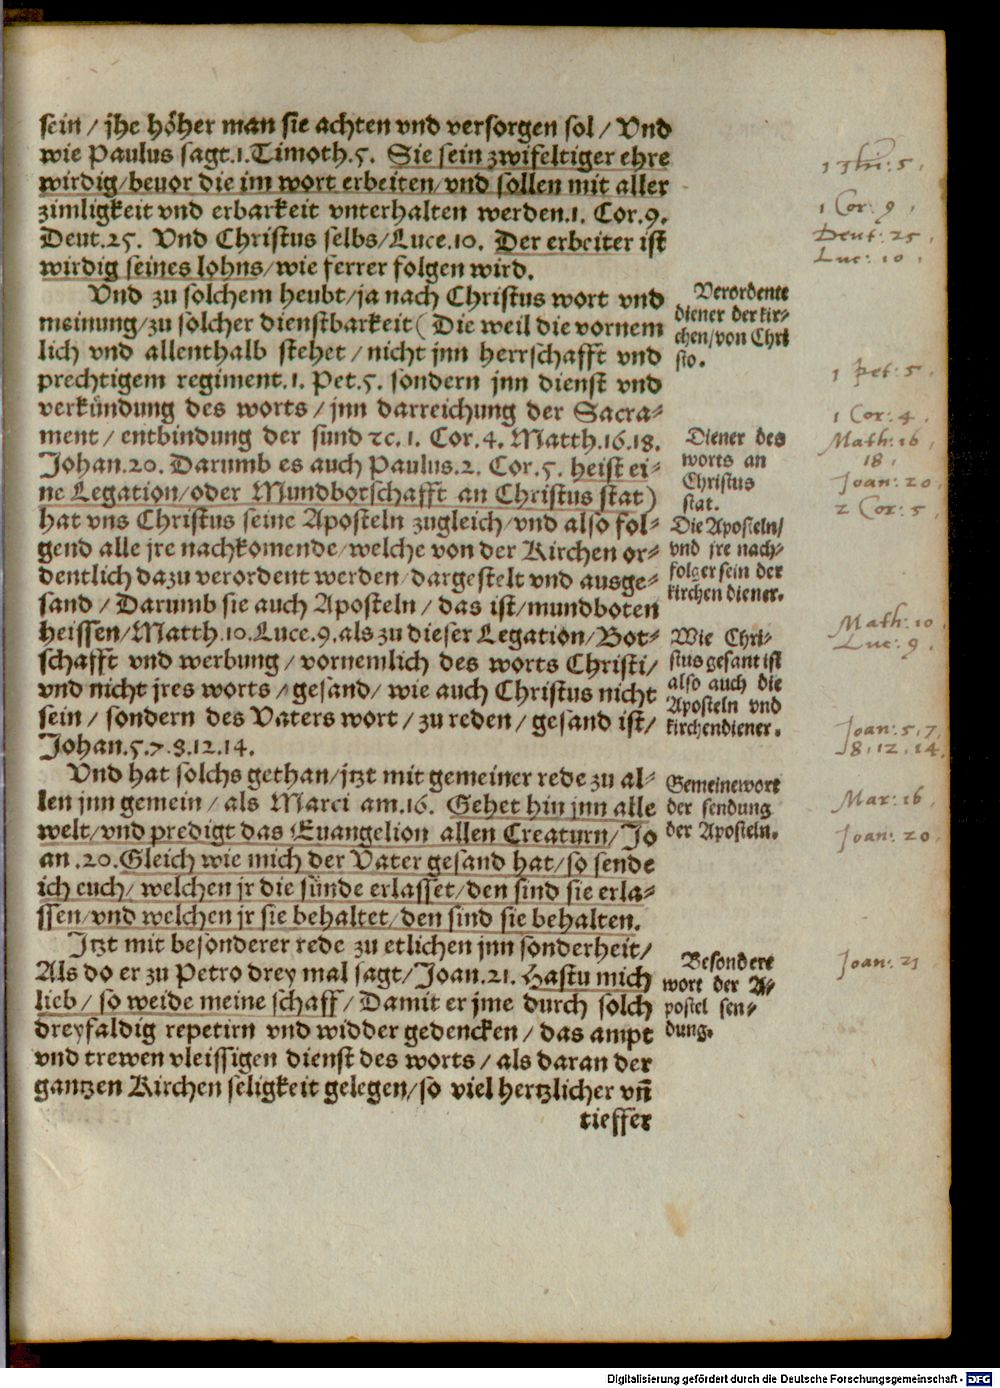 sein / jhe höher man sie achten vnd versorgen sol / Vnd
wie Paulus sagt.1.Timoth.5. Sie sein zwifeltiger ehre
wirdig/beuor die im wort erbeiten/vnd sollen mit aller
zimligkeit vnd erbarkeit vnterhalten werden.1. Cor.9.
Deut.25. Vnd Christus selbs/Luce.10. Der erbeiter ist
wirdig seines lohns/wie ferrer folgen wird.
Vnd zu solchem heubt/ja nach Christus wort vnd
meinung/zu solcher dienstbarkeit( Die weil die vornem
lich vnd allenthalb stehet/nicht jnn herrschafft vnd
prechtigem regiment.1. Pet.5. sondern jnn dienst vnd
verkündung des worts/jnn darreichung der Sacra-
ment/entbindung der sund ꝛc. 1. Cor.4. Matth.16.18.
Johan.20. Darumb es auch Paulus.2. Cor.5. heist ei-
ne Legation/oder Mundbotschafft an Christus stat)
hat vns Christus seine Aposteln zugleich/vnd also fol-
gend alle jre nachkomende/welche von der Kirchen or-
dentlich dazu verordent werden/dargestelt vnd ausge-
sand / Darumb sie auch Aposteln / das ist/mundboten
heissen/Matth.10.Luce.9.als zu dieser Legation/Bot-
schafft vnd werbung / vornemlich des worts Christi/
vnd nicht jres worts / gesand/ wie auch Christus nicht
sein / sondern des Vaters wort / zu reden / gesand ist/
Johan.5.7.8.12.14.
Vnd hat solchs gethan/jtzt mit gemeiner rede zu al-
len jnn gemein / als Marci am.16. Gehet hin jnn alle
welt/vnd predigt das Euangelion allen Creaturn/Jo
an .20.Gleich wie mich der Vater gesand hat/so sende
ich euch/ welchen jr die sünde erlasset/den sind sie erla-
ssen/vnd welchen jr sie behaltet/den sind sie behalten.
Jtzt mit besonderer rede zu etlichen jnn sonderheit/
Als do er zu Petro drey mal sagt/Joan.21. Hastu mich
lieb/ so weide meine schaff/ Damit er jme durch solch
dreyfaldig repetirn vnd widder gedencken/das ampt
vnd trewen vleissigen dienst des worts / als daran der
gantzen Kirchen seligkeit gelegen/so viel hertzlicher vñ
tieffer
Verordente
diener der kir-
chen/von Chri
sto.
Diener des
worts an
Christus
stat.
Die Aposteln/
vnd jre nach-
folger sein der
kirchen diener.
Wie Chri-
stus gesant ist
also auch die
Aposteln vnd
kirchendiener.
Gemeine wort
der sendung
der Aposteln.
Besondere
wort der A-
postel sen-
dung.
1 Cor: 9.
Deut: 25.
Luc: 10.
1 Pet: 5.
1 Cor: 4.
Math: 16.
18.
Joan: 20.
2 Cor: 5.
Math: 10.
Luc: 9.
Joan: 5.7.
8.12.14.
Mar: 16.
Joan: 20.
Joan: 21.
Digitalisierung gefördert durch die Deutsche Forschungsgemeinschaft - DFG